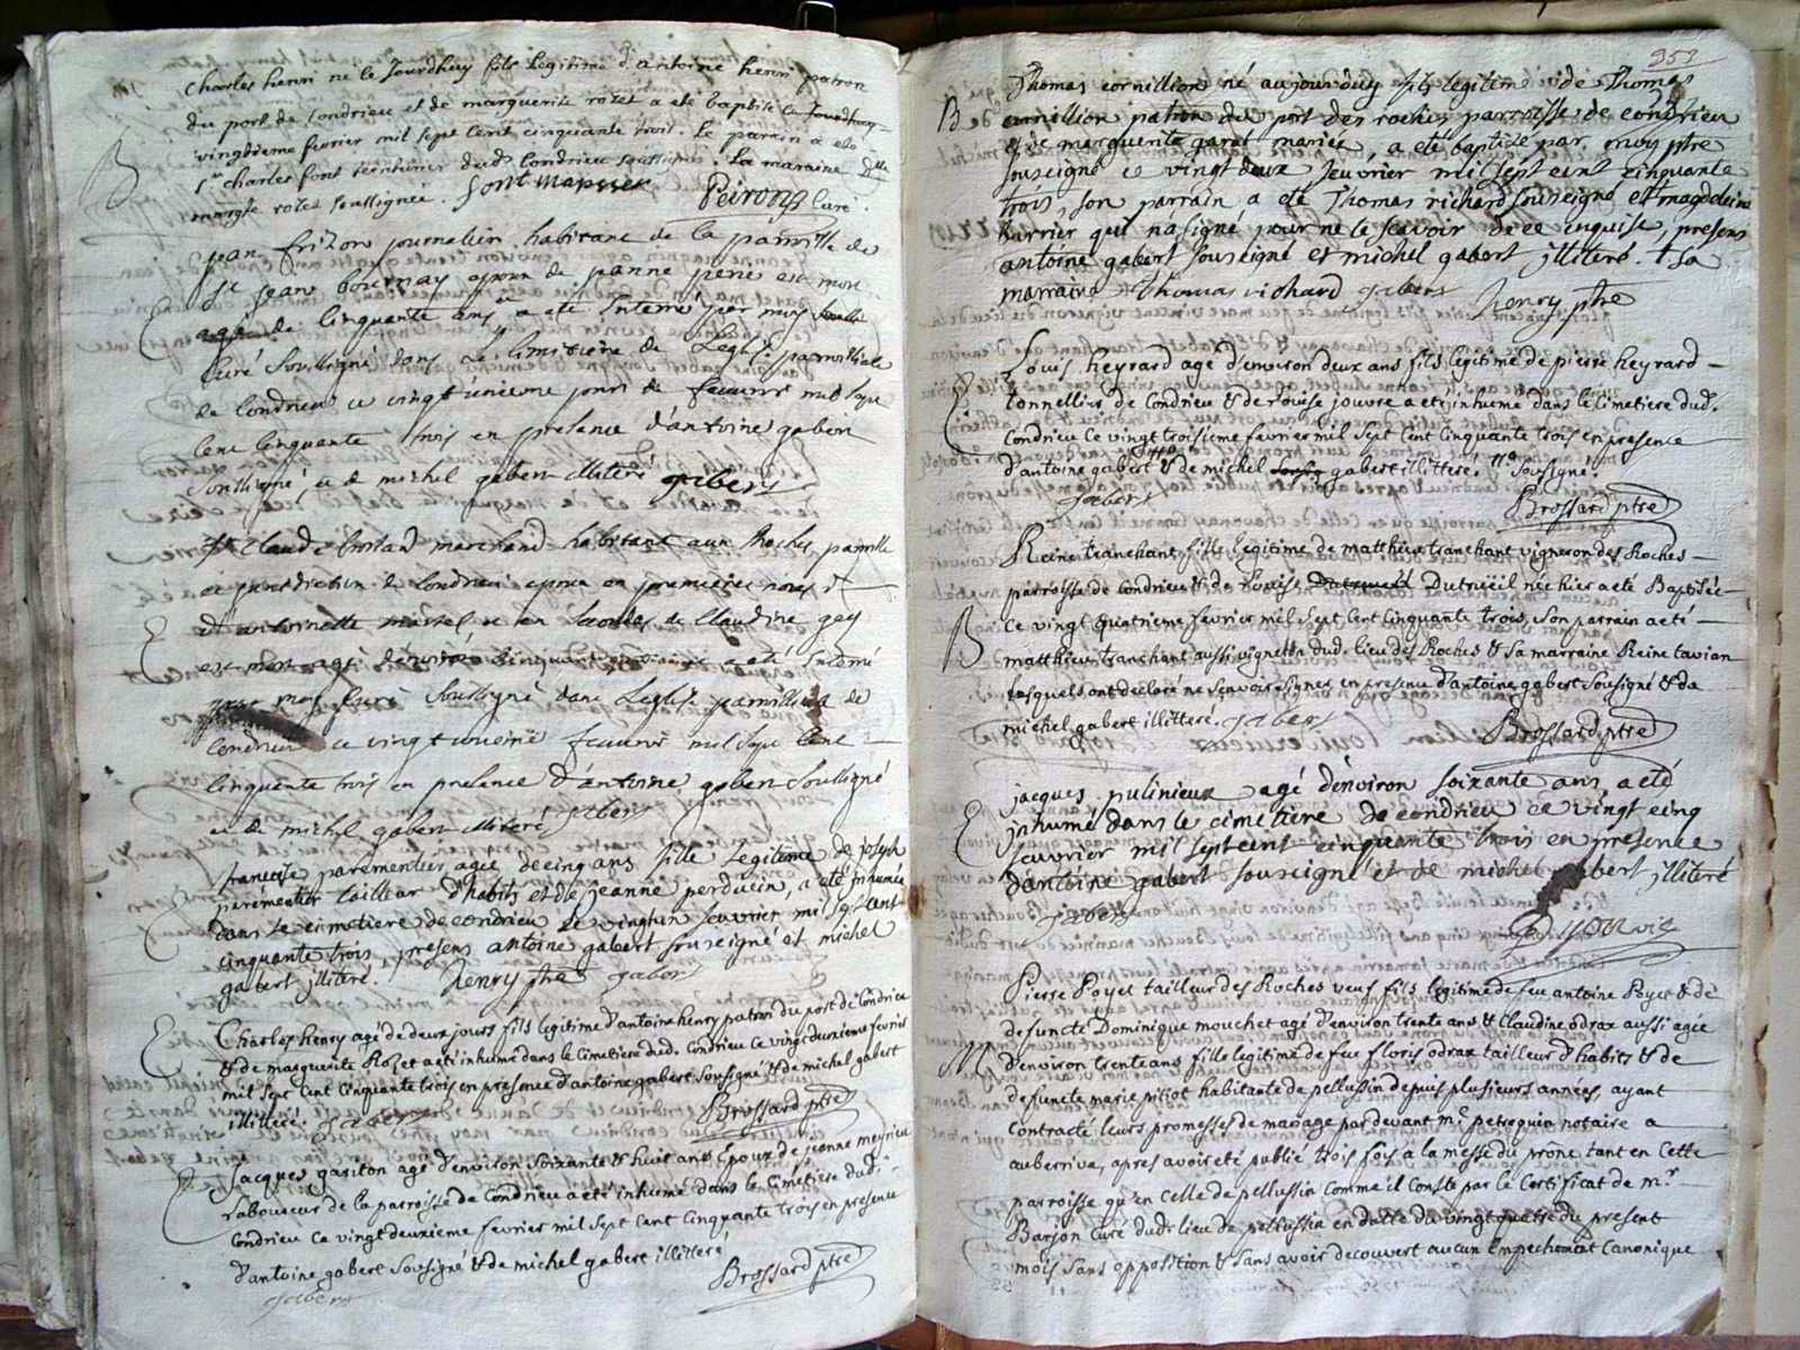 Charles henri né le Jourdhuy fils Legitime d'antoine henri patron
du port de Condrieu et de marguerite rozet a eté baptisé ce Jourdhuy
vingtieme fevrier mil sept Cent cinquante trois. Le parain a eté
Sr charles font teinturier dud. Condrieu soussigné. La maraine Dlle
rozet soussignée. Peironz Curé.
B
jean frizon journalier habitant de la paroisse de
St jean bournay epoux de jeanne est mort
agé de Cinquante ans a eté Enterré par moy
Curé Soussigné dans Le Cimitiere de Leglise parroissiale
de Condrieu ce vingt unieme jour de feuvrier mil sept
Cent Cinquante trois en presance d'antoine gabert
Soussigné et de michel gabert illiteré gabert
Sr Claude marchand habitant aux Roches parroisse
et jurisdiction de Condrieu epoux en premieres noces
d'antoinette martel et en Secondes de Claudine gay
est mort agé d'environ Cinquante a eté Enterré
par moy Curé Soussigné dans Leglise parroissiale de
Condrieu ce vingt unieme feuvrier mil sept Cent
Cinquante trois en presance d'antoine gabert Soussigné
et de michel gabert illiteré gabert
francoise parementier agée de cinq ans fille Legitime de joseph
parémentier tailleur d'habits et de jeanne perducin, a eté inhumée
dans le cimetiere de condrieu le vingtun feuvrier mil sept cent
cinquante trois, presens antoine gabert souseigné et michel
gabert jlliteré. henry ptre gabert
Charles henry agé de deux jours fils legitime d'antoine henry patron du port de Condrieu
& de marguerite Rozet a eté inhumé dans le Cimetiere dud. Condrieu ce vingt deuxieme fevrier
mil sept Cent Cinquante trois en presence d'antoine gabert Sousigné & de michel gabert
illiteré. gabert Brossard ptre
Jacques gariton agé d'environ Soixante & huit ans Epoux de jeanne meyrieu
Laboureur de la parroisse de Condrieu a eté inhumé dans le Cimetiere dud.
Condrieu Ce vingt deuxieme fevrier mil Sept Cent Cinquante trois en presence
d'antoine gabert Sousigné & de michel gabert illiteré
gabert Brossard ptre
353
Thomas cornillion né aujourd'uy fils legitime de Thomas
B cornillion patron du port des roches parroisse de condrieu
et de marguerite garat mariée, a eté baptizé par moy ptre
souseigné ce vingt deux feuvrier mil sept cent cinquante
trois, son parrain a eté Thomas richard souseigné et magdeleine
qui n'a signé pour ne le scavoir de ce enquise, presens
antoine gabert souseigné et michel gabert jlliteré. † sa
marraine Thomas richard gabert henry ptre
Louis heyrard agé d'environ deux ans fils legitime de pierre heyrard
tonnellier de Condrieu & de Louise jouvre a eté inhumé dans le Cimetiere dud.
Condrieu Ce vingt troisieme fevrier mil Sept Cent Cinquante trois en presence
d'antoine gabert & de michel gabert illitteré. Sousigné
gabert Brossard ptre
Reine tranchant fille legitime de matthieu tranchant vigneron des Roches
parroisse de Condrieu & de Louise Dutrüeil née hier a eté Baptisée
B Ce vingt quatrieme fevrier mil Sept Cent Cinquante trois, Son parrain a eté
matthieu tranchant aussi vigneron dud. lieu des Roches & Sa marraine Reine tavian
lesquels ont declaré ne Scavoir Signer en presence d'antoine gabert Sousigné & de
michel gabert illitteré. gabert Brossard ptre
jacques pulinieux agé d'environ soixante ans, a eté
jnhumé dans le cimetiere de condrieu ce vingt cinq
feuvrier mil sept cent cinquante trois en presence
d'antoine gabert souseigné et de michel gabert jlliteré
gabert
Pierre Poyet tailleur des Roches veuf fils legitime de feu antoine Poyet & de
defuncte Dominique mouchet agé d'environ trente ans & Claudine odrax aussi agée
M d'environ trente ans fille legitime de feu floris odrax tailleur d'habits & de
defuncte marie pitiot habitante de pellussin depuis plusieurs années, ayant
Contracté leurs promesses de mariage par devant me. petroquin notaire a
auberrive, apres avoir eté publié trois fois a la messe du prône tant en Cette
parroisse qu'en Celle de pellussin Comme il Conste par le Certificat de mr.
Barjon Curé dudt. lieu de pellussin en datte du vingt quatre du present
mois Sans opposition & Sans avoir decouvert aucun Empechemat Canonique